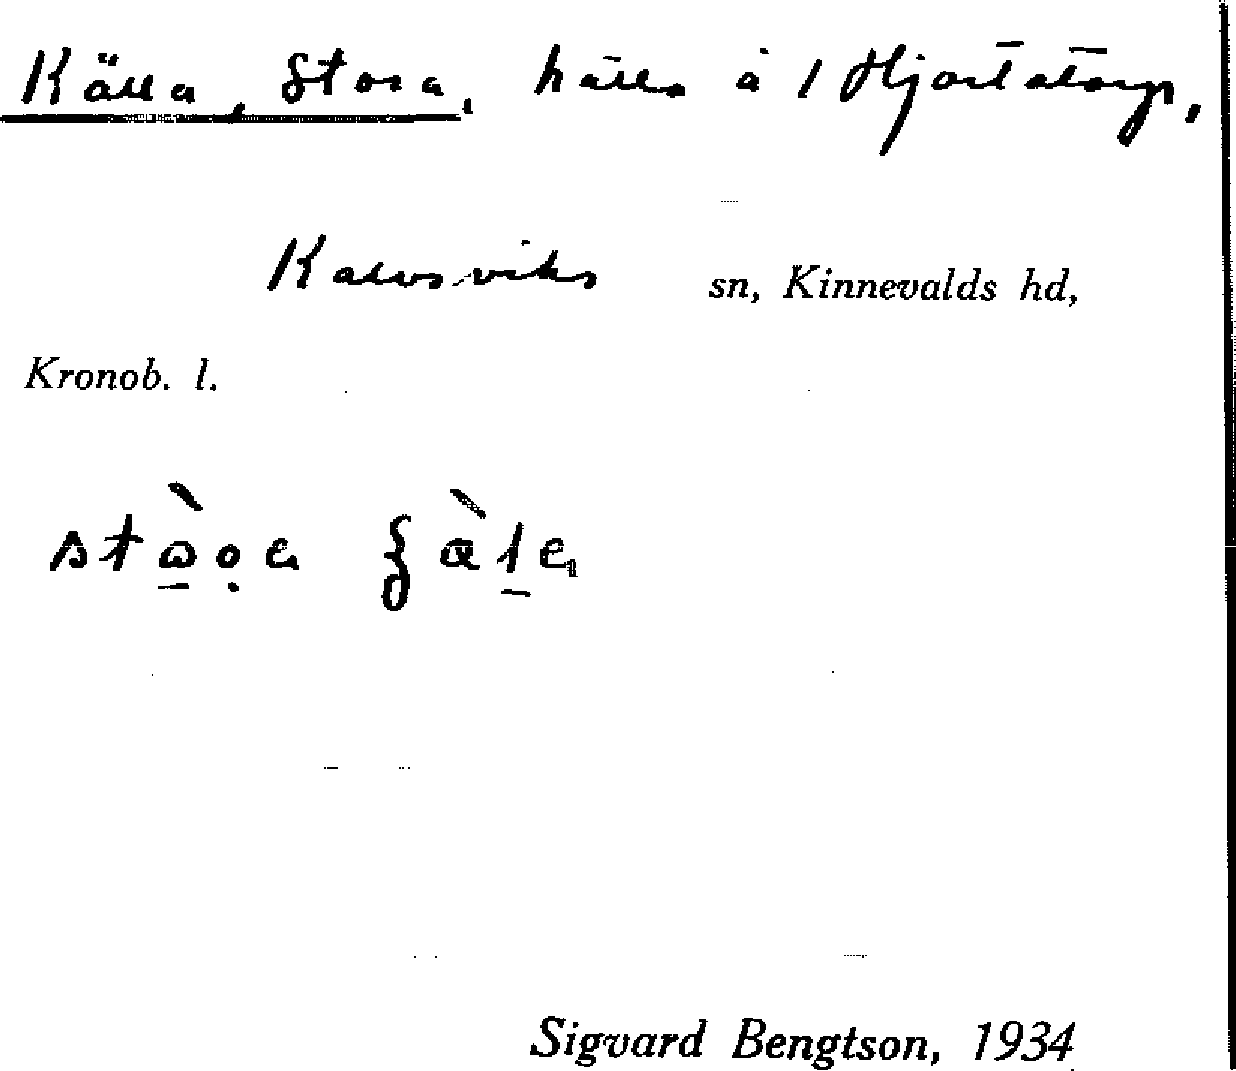 Källa, Stora, källa å 1 Hjortatorp,
Kalvsviks sn, Kinnevalds hd,
Kronob. l.
Sigvard Bengtson, 1934